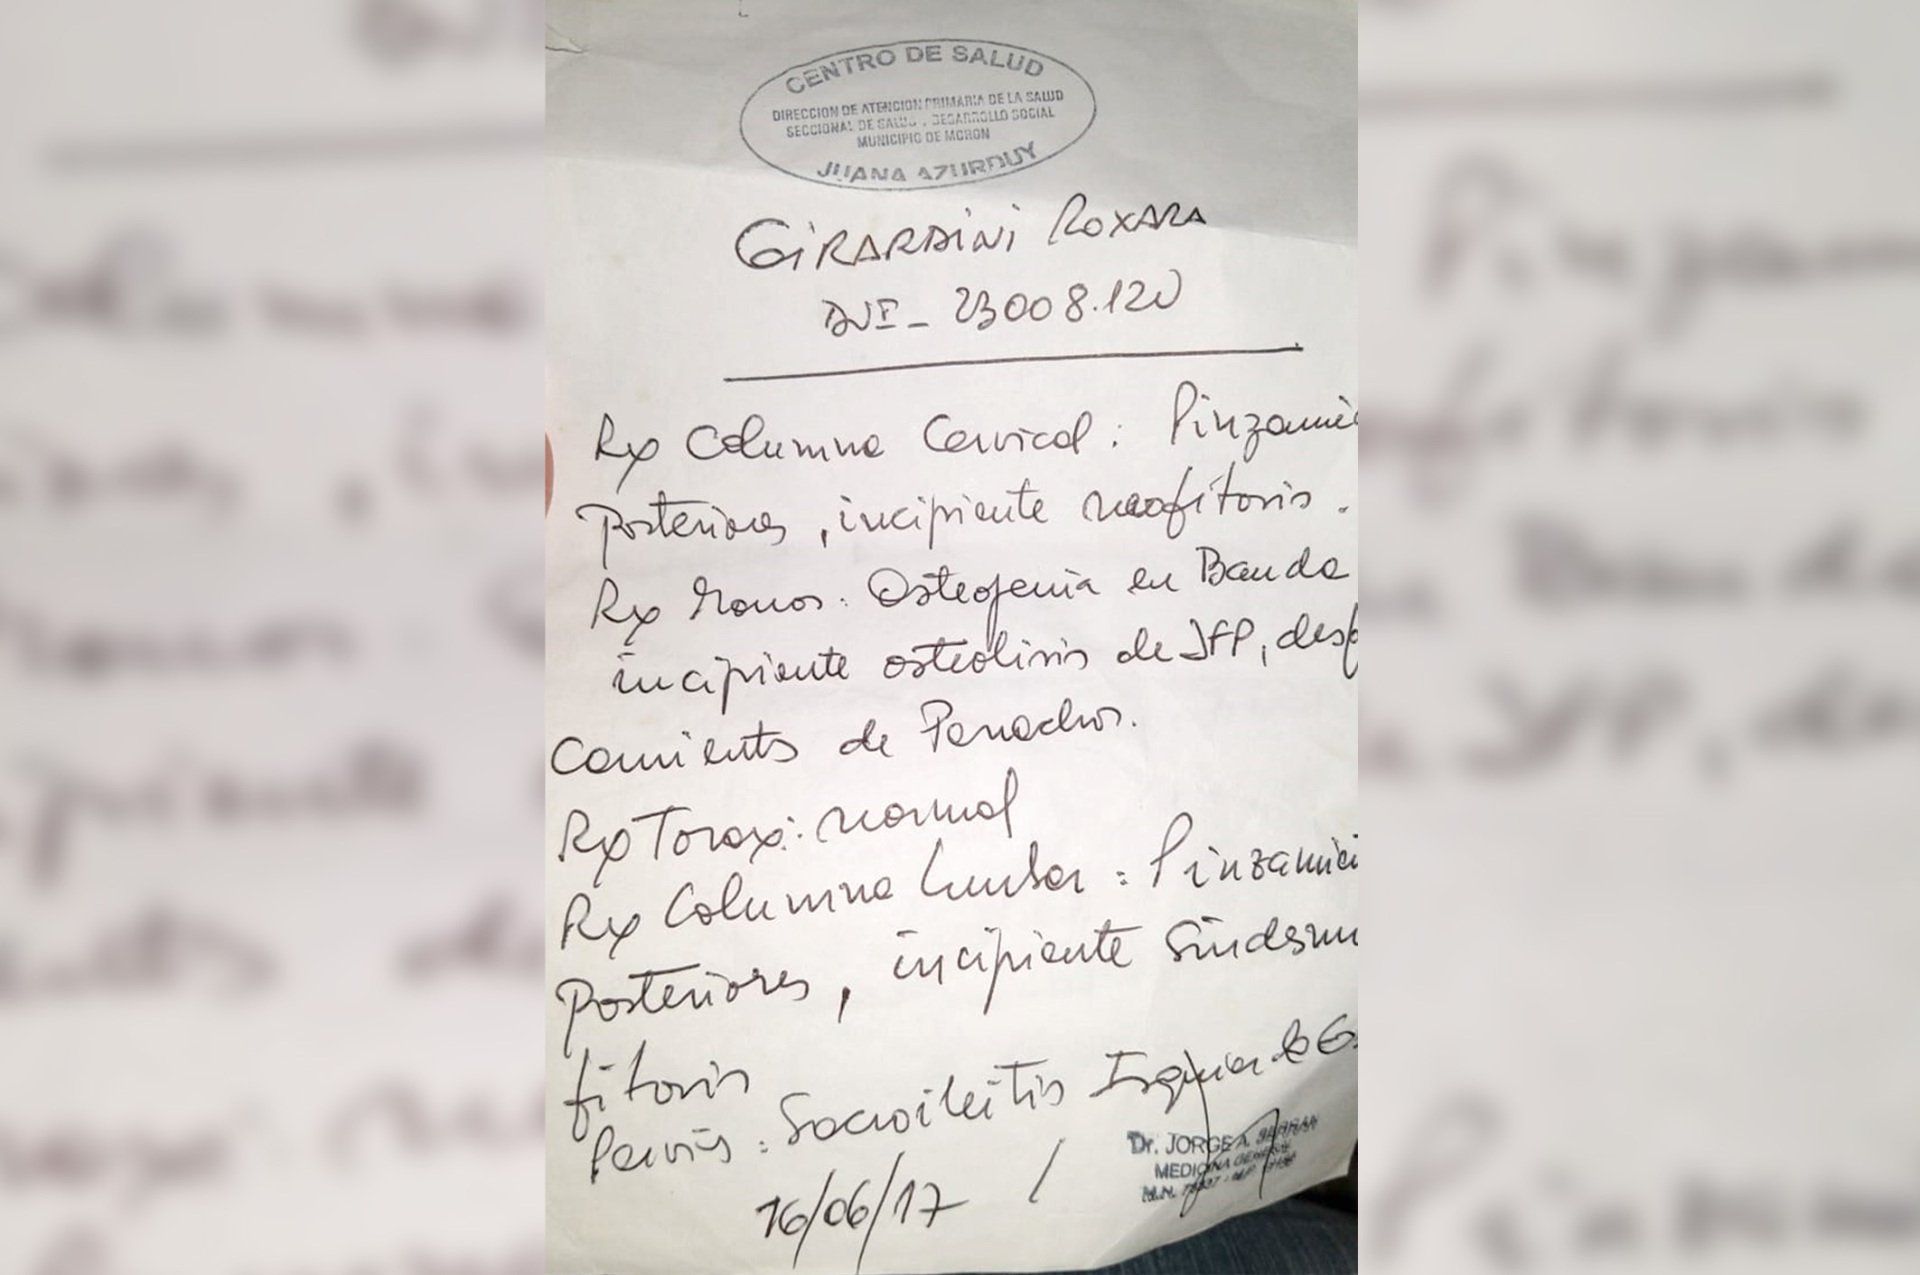 CENTRO DE SALUD
DIRECCION DE ATENCION PRIMARIA DE LA SALUD
SECCIONAL DE SALUD . DESARROLLO SOCIAL
MUNICIPIO DE MORON
JUANA AZURDUY
GIRARDINI ROXARA
DNI - 23008.120
Rx Columna Cervical : Pinzamie
posteriores , incipiente neofitosis .
Rx Manos : Osteopenia en Banda
incipiente osteolisis de IFP, desp
camiento de Penachos.
Rx Torax : normal
Rx Columna Lumbar : Pinzamie
Posteriores , incipiente Sindesmo
fitosis
Pelvis : Sacroileitis Izquierda
16/06/17 /
Dr. JORGE A.
MEDICINA GENERAL
M.N.